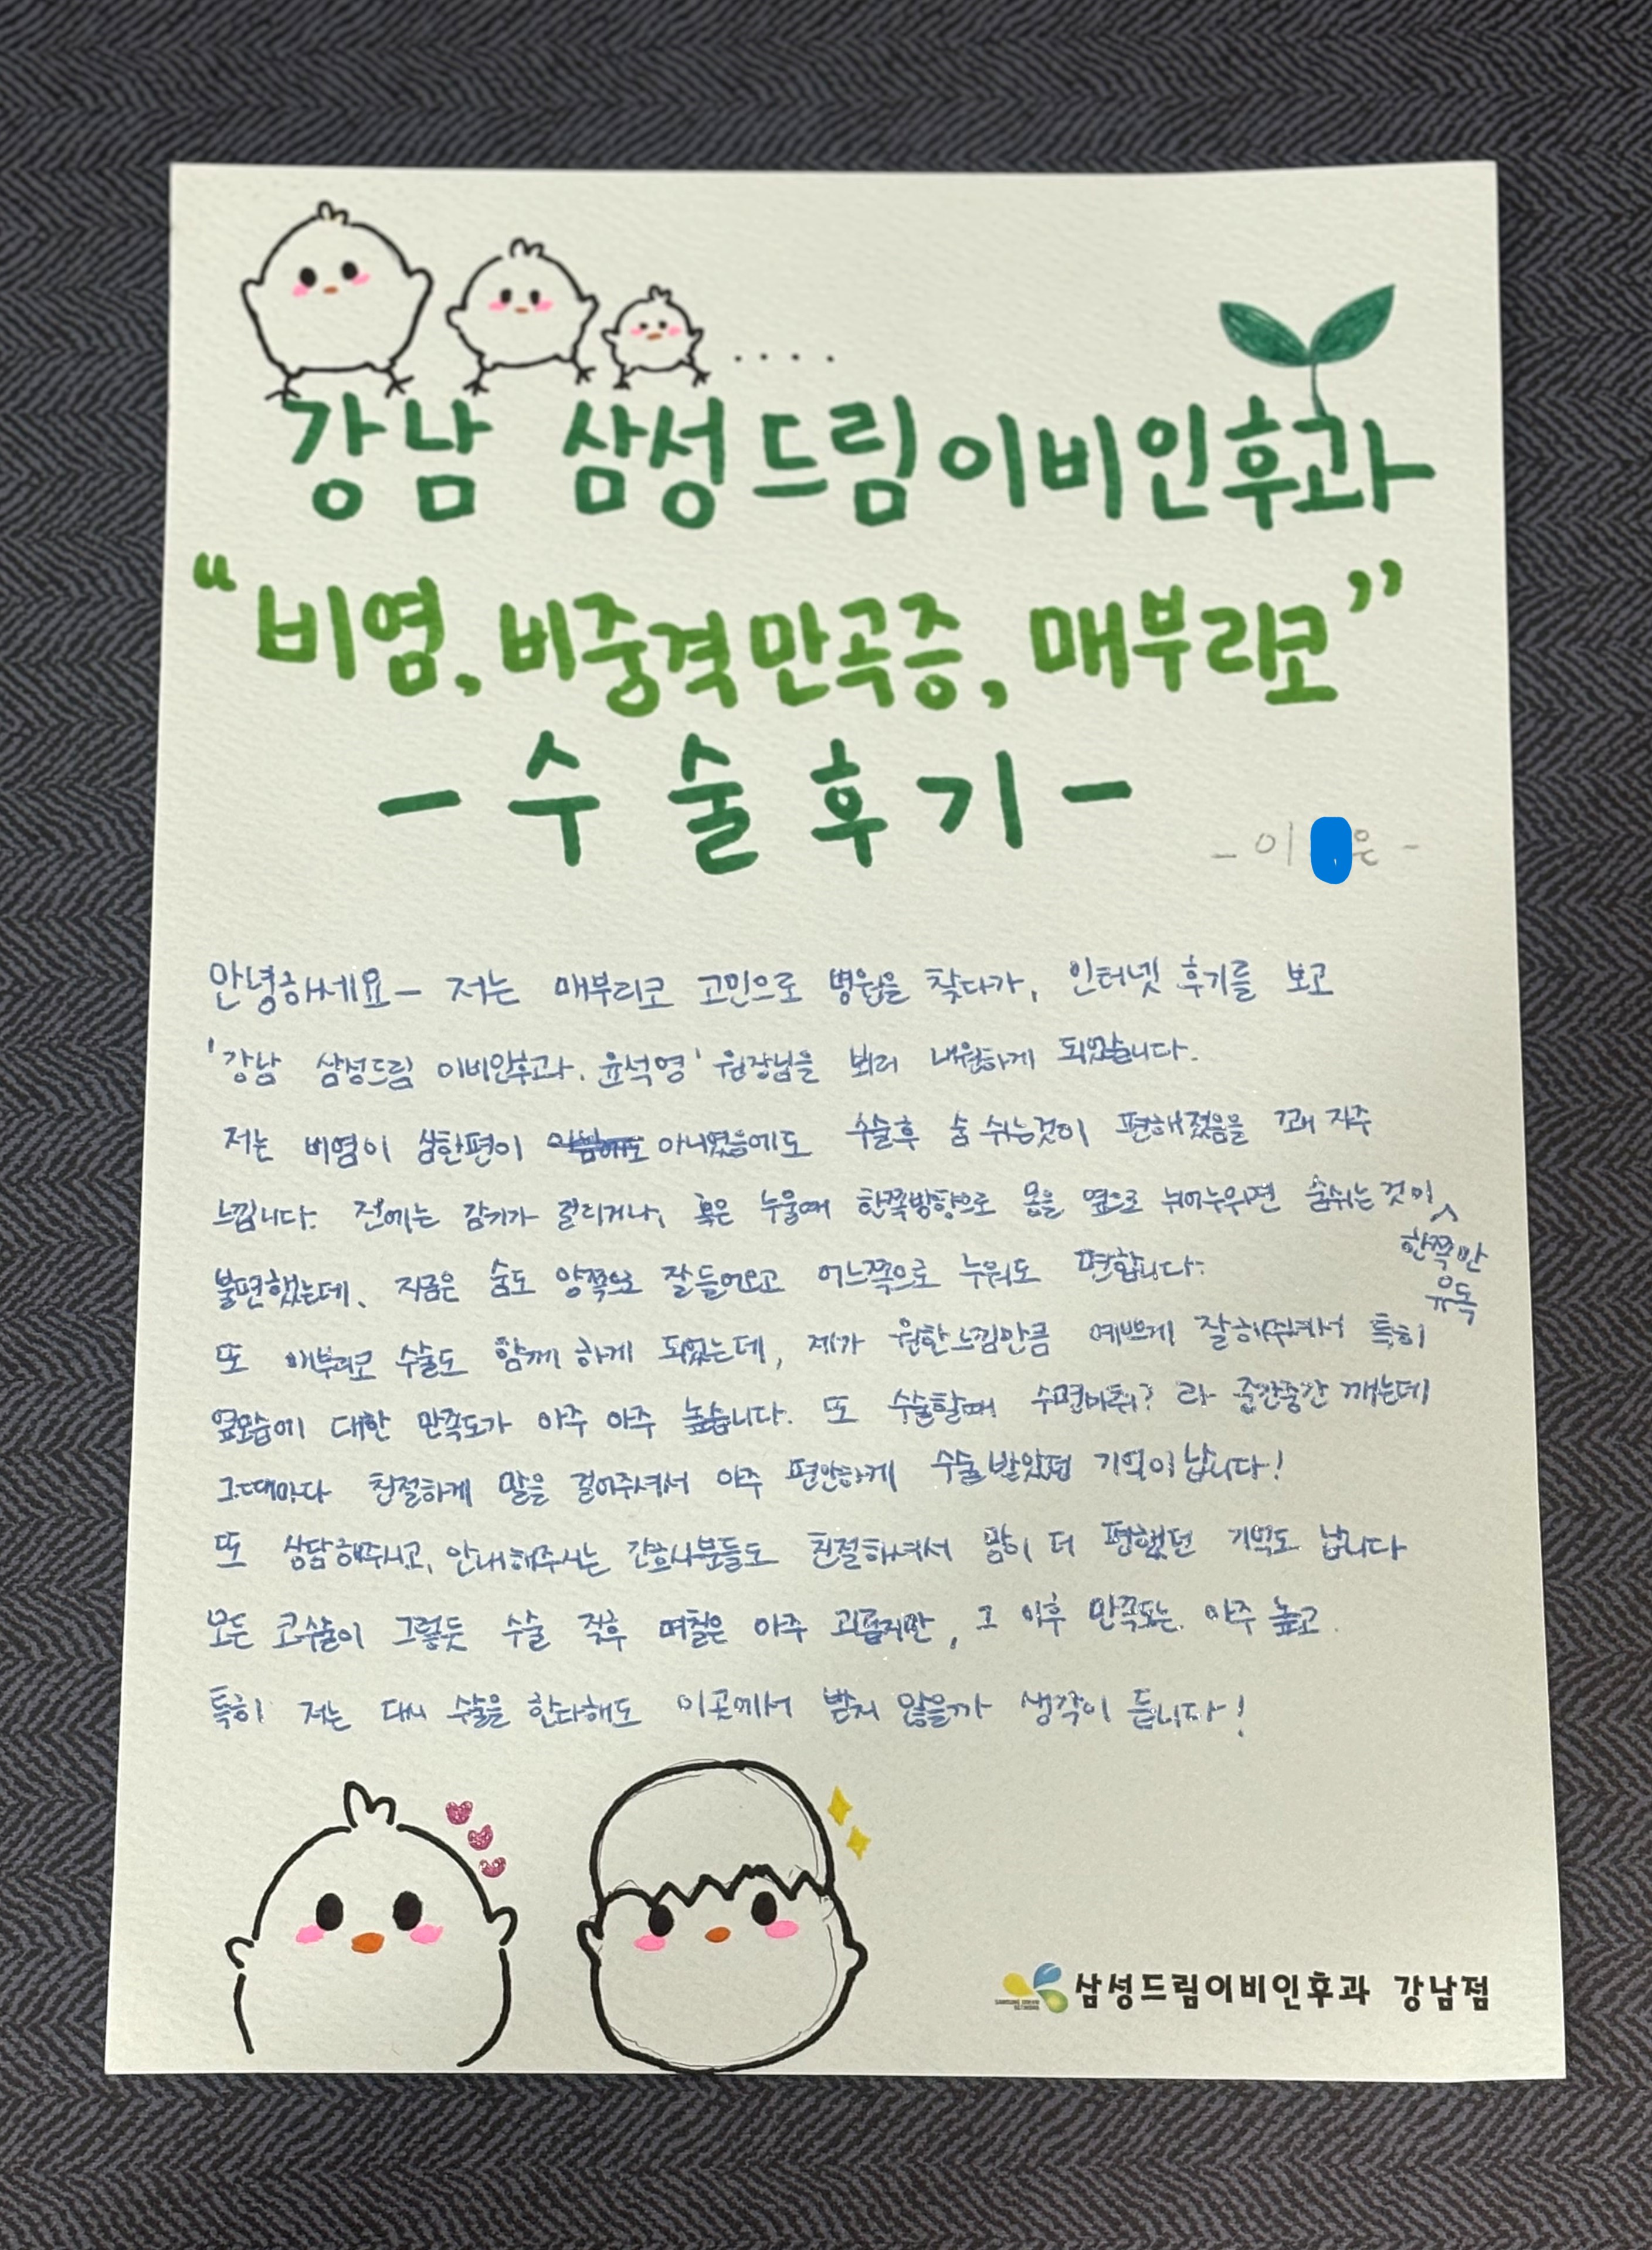 강남 삼성드림이비인후과
“비염, 비중격만곡증, 매부리코”
- 수술후기 -
- 이 은 -
안녕하세요- 저는 매부리코 고민으로 병원을 찾다가, 인터넷 후기를 보고
'강남 삼성드림 이비인후과. 윤석영' 원장님을 뵈러 내원하게 되었습니다.
저는 비염이 심한편이 아니였음에도 수술후 숨 쉬는것이 편해졌음을 꽤 자주
느낍니다. 전에는 감기가 걸리거나, 혹은 누울때 한쪽방향으로 몸을 옆으로 뉘어누워면 숨쉬는 것이
한쪽만
유독
불편했는데, 지금은 숨도 양쪽으로 잘 들어오고 어느쪽으로 누워도 편합니다.
또 매부리코 수술도 함께 하게 되었는데, 제가 원한느낌만큼 예쁘게 잘해주셔서 특히
옆모습에 대한 만족도가 아주 아주 높습니다. 또 수술할때 수면마취? 라 중간중간 깨는데
그때마다 친절하게 말을 걸어주셔서 아주 편안하게 수술받았던 기억이 납니다!
또 상담해주시고, 안내해주시는 간호사분들도 친절하셔서 맘이 더 편했던 기억도 납니다
모든 코수술이 그렇듯 수술 직후 며칠은 아주 괴롭지만, 그 이후 만족도는 아주 높고
특히 저는 다시 수술을 한다해도 이곳에서 받지 않을까 생각이 듭니다!
삼성드림이비인후과 강남점